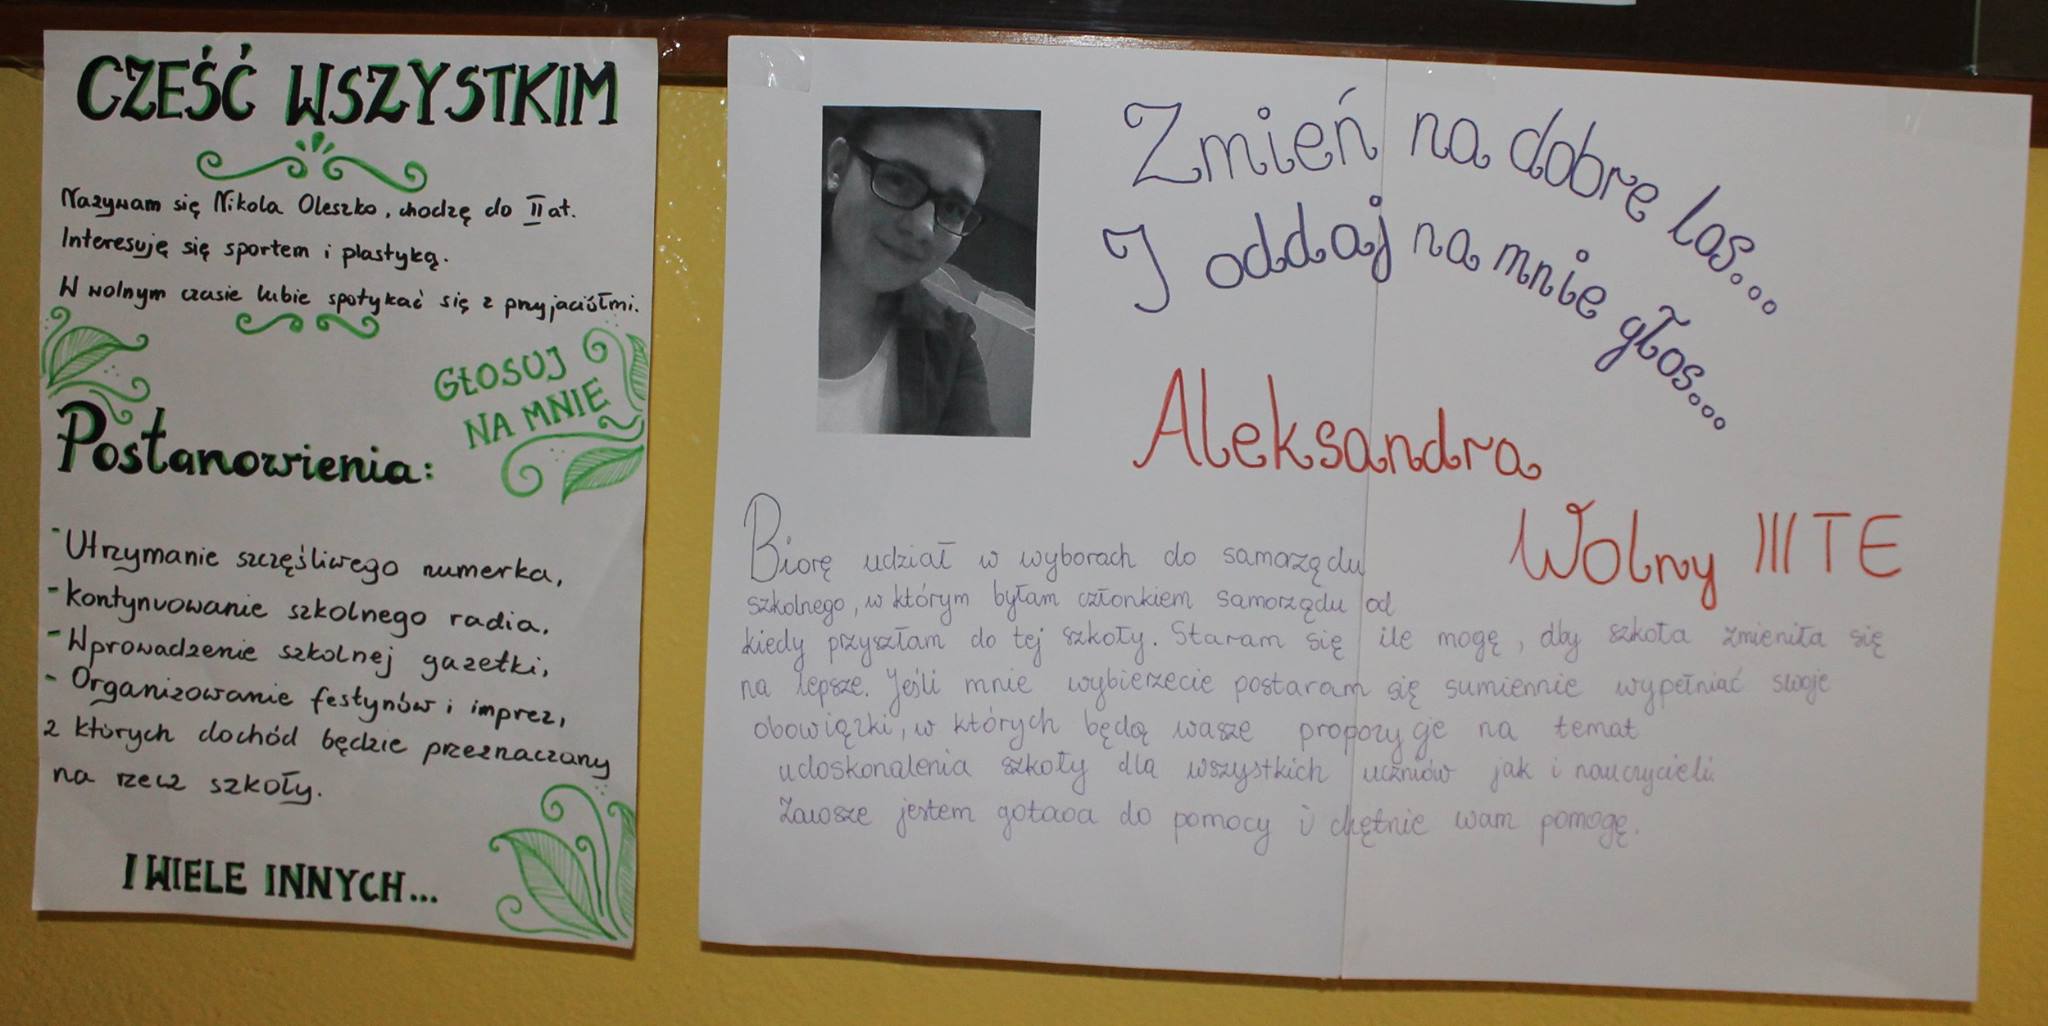 CZEŚĆ WSZYSTKIM
Nazywam się Nikola Oleszko, chodzę do II at.
Interesuję się sportem i plastyką.
W wolnym czasie lubie spotykać się z przyjaciółmi.
GŁOSUJ
NA MNIE
Postanowienia:
- Utrzymanie szczęśliwego numerka,
- kontynuowanie szkolnego radia.
- Wprowadzenie szkolnej gazetki,
- Organizowanie festynów i imprez,
z których dochód będzie przeznaczany
na rzecz szkoły.
I WIELE INNYCH...
Zmień na dobre los...
I oddaj na mnie głos...
Aleksandra
Wolny III TE
Biorę udział w wyborach do samorządu
szkolnego, w którym byłam członkiem samorządu od
kiedy przyszłam do tej szkoły. Staram się ile mogę, aby szkoła zmieniła się
na lepsze. Jeśli mnie wybierzecie postaram się sumiennie wypełniać swoje
obowiązki, w których będą wasze propozycje na temat
udoskonalenia szkoły dla wszystkich uczniów jak i nauczycieli.
Zawsze jestem gotowa do pomocy i chętnie wam pomogę.